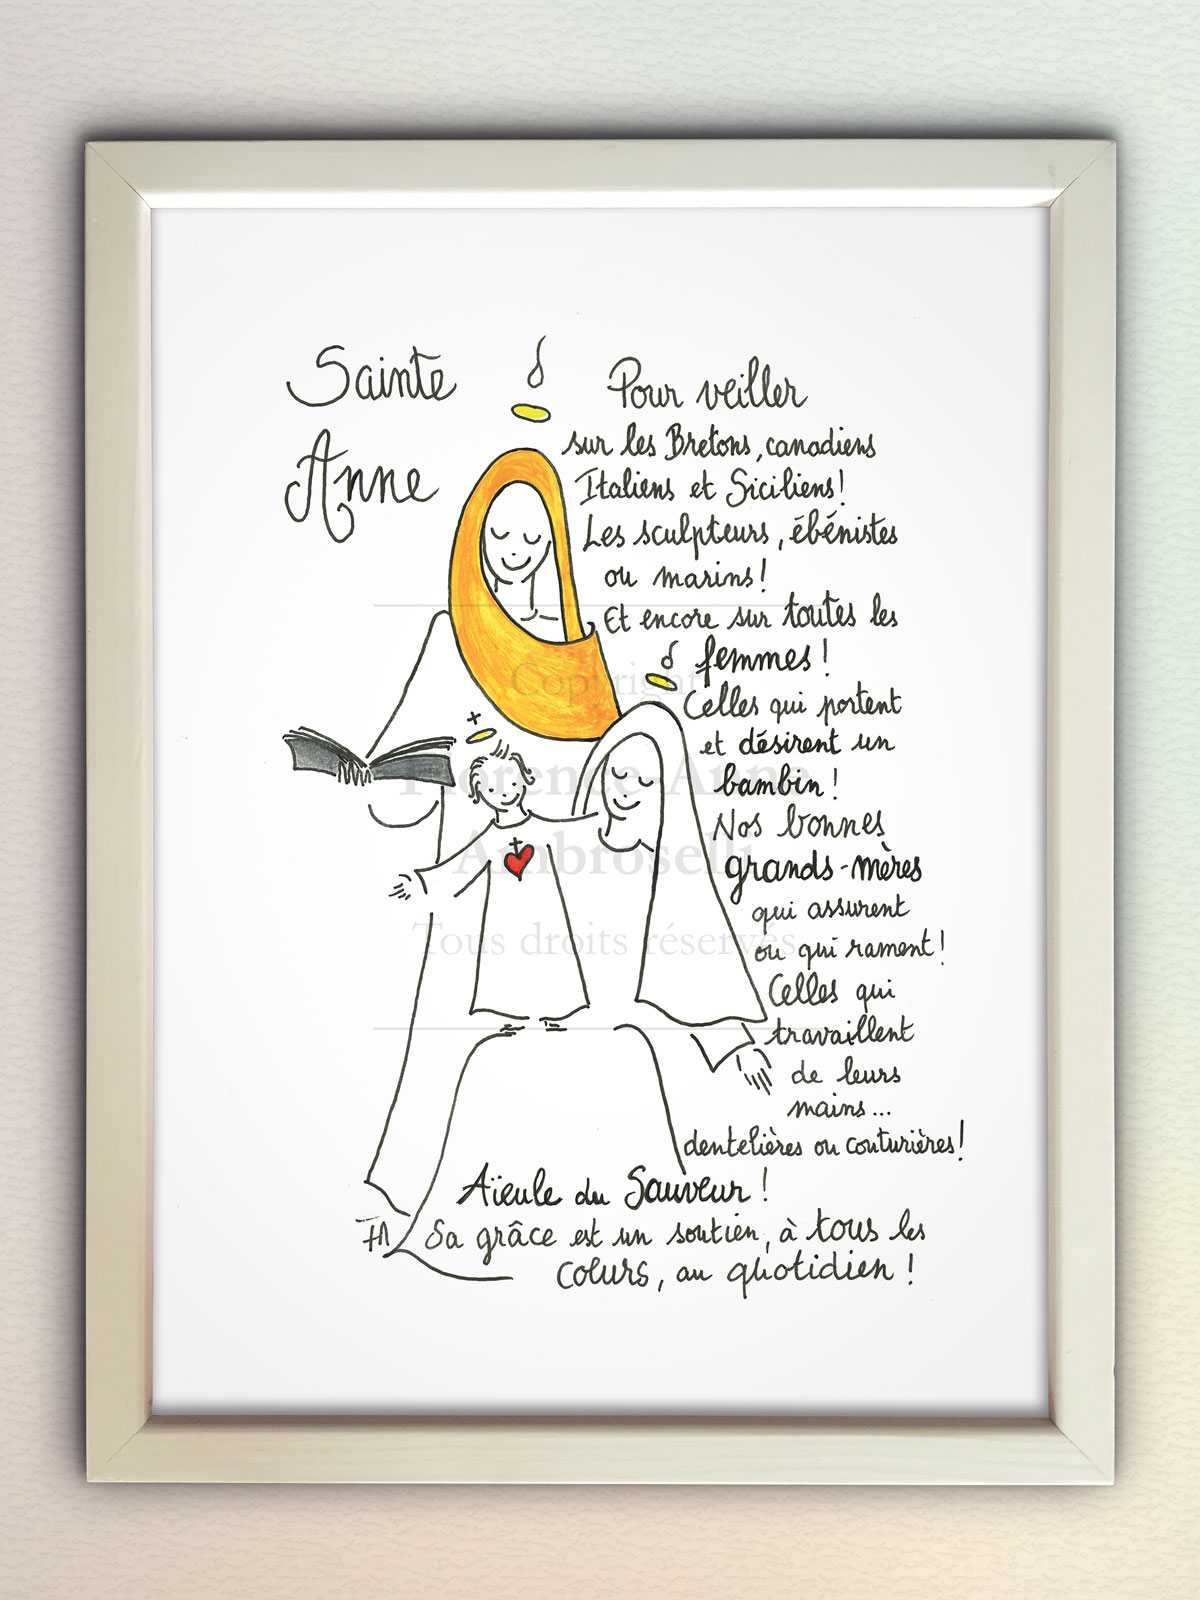 Sainte
Anne
Pour veiller
sur les Bretons, canadiens
Italiens et Siciliens!
Les sculpteurs, ébénistes
ou marins!
Et encore sur toutes les
femmes!
Celles qui portent
et désirent un
bambin!
Nos bonnes
grands-mères
qui assurent
ou qui rament!
Celles qui
travaillent
de leurs
mains...
dentelières ou couturières!
Aïeule du Sauveur!
Sa grâce est un soutien, à tous les
cœurs, au quotidien!
FA
Copyright
Florence-Anne
Ambroselli
Tous droits réservés